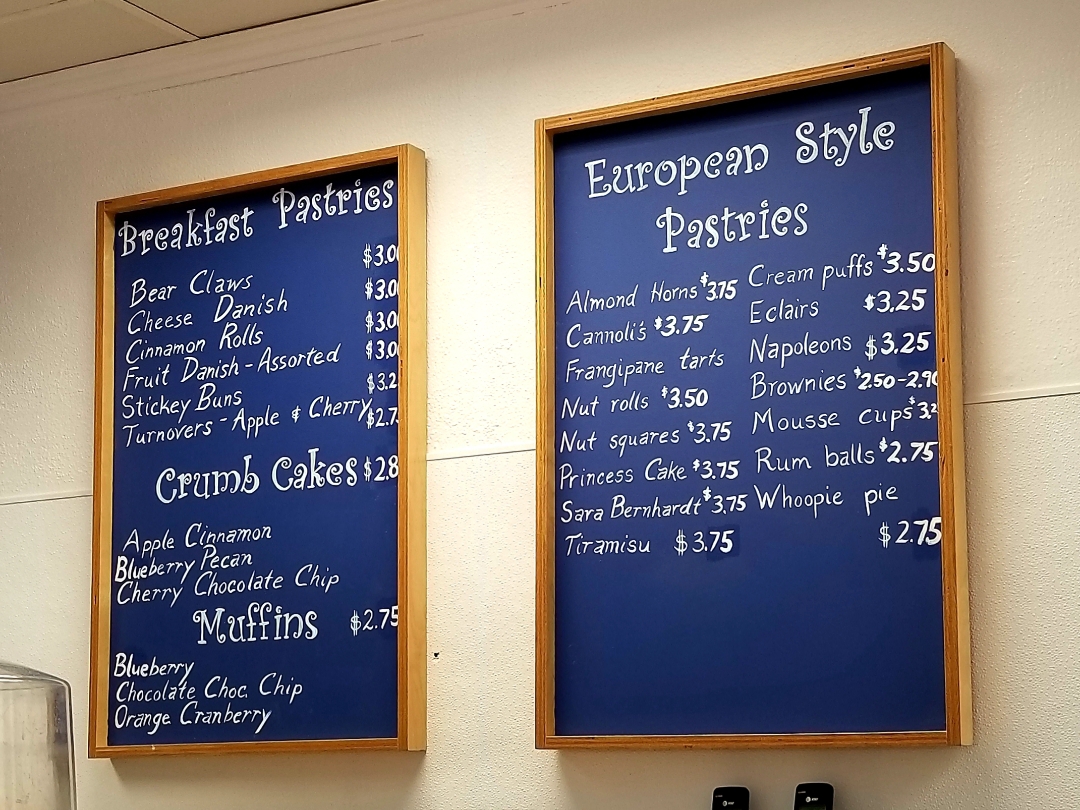 Breakfast Pastries
$3.00
Bear Claws
$3.00
Cheese Danish
$3.00
Cinnamon Rolls
$3.00
Fruit Danish-Assorted
$3.2
Stickey Buns
$2.7
Turnovers-Apple & Cherry
Crumb Cakes $2.8
Apple Cinnamon
Blueberry Pecan
Cherry Chocolate Chip
Muffins $2.75
Blueberry
Chocolate Choc. Chip
Orange Cranberry
European Style
Pastries
Almond Horns $3.75
Cannoli's $3.75
Frangipane tarts
Nut rolls $3.50
Nut squares $3.75
Princess Cake $3.75
Sara Bernhardt $3.75
Tiramisu $3.75
Cream puffs $3.50
Eclairs $3.25
Napoleons $3.25
Brownies $2.50-2.90
Mousse cups $3.2
Rum balls $2.75
Whoopie pie
$2.75
at&t
at&t